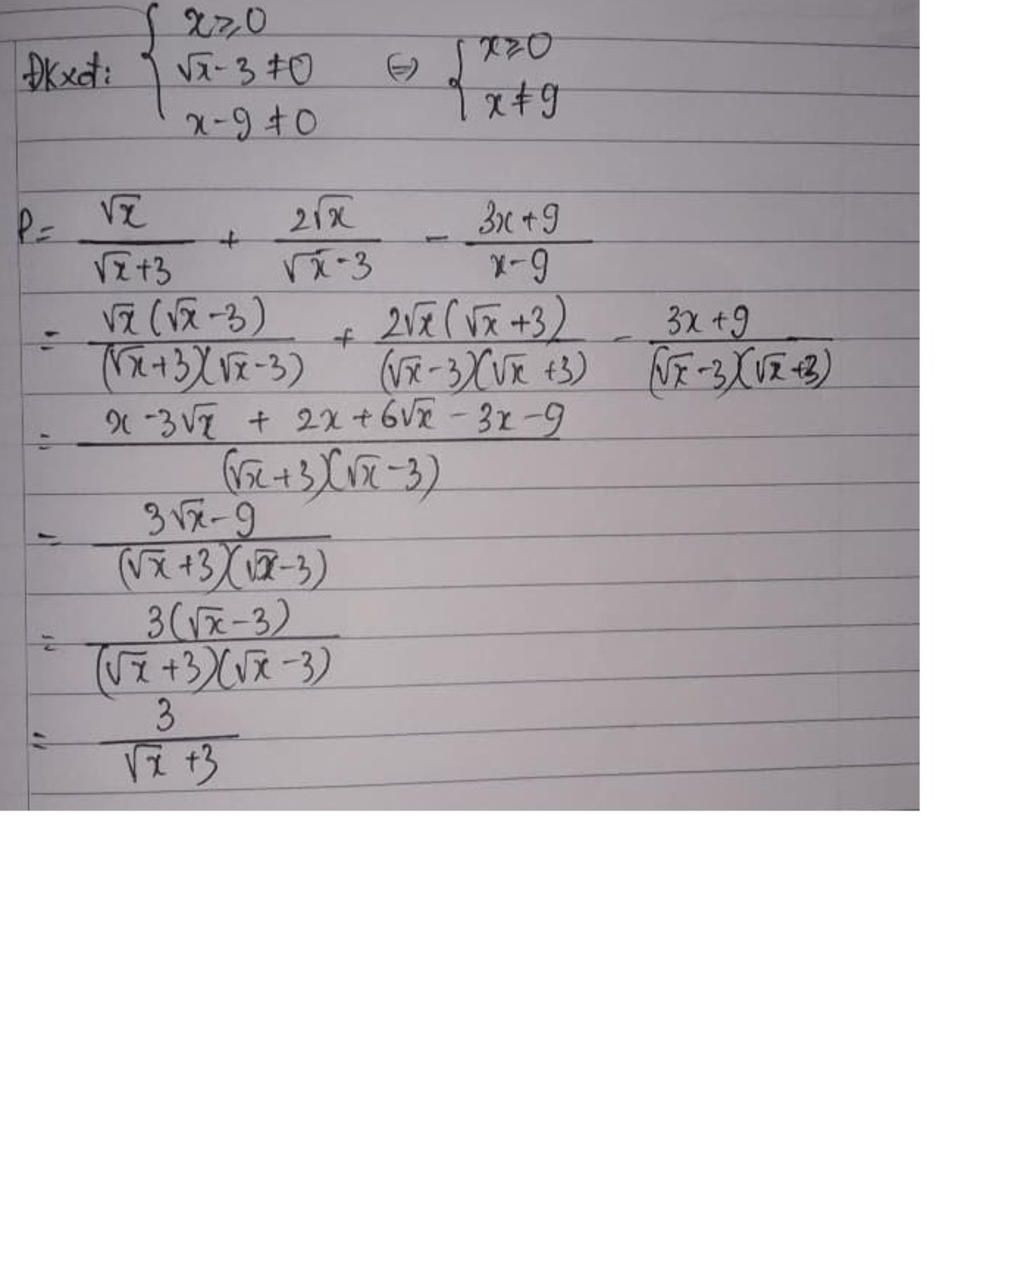 ĐKxđ: { x ≥ 0
√x - 3 ≠ 0
x - 9 ≠ 0
⇔ { x ≥ 0
x ≠ 9
P = √x / (√x + 3) + 2√x / (√x - 3) - (3x + 9) / (x - 9)
= √x(√x - 3) / (√x + 3)(√x - 3) + 2√x(√x + 3) / (√x - 3)(√x + 3) - (3x + 9) / (√x - 3)(√x + 3)
= (x - 3√x + 2x + 6√x - 3x - 9) / (√x + 3)(√x - 3)
= (3√x - 9) / (√x + 3)(√x - 3)
= 3(√x - 3) / (√x + 3)(√x - 3)
= 3 / (√x + 3)